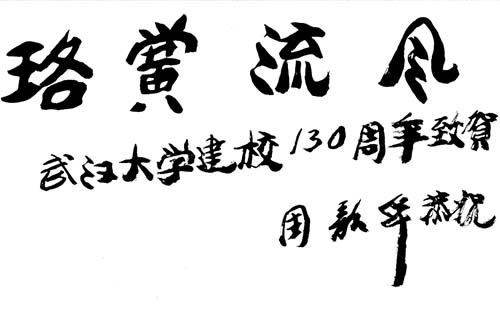 珞黉流风
武汉大学建校130周年致賀
周年恭祝